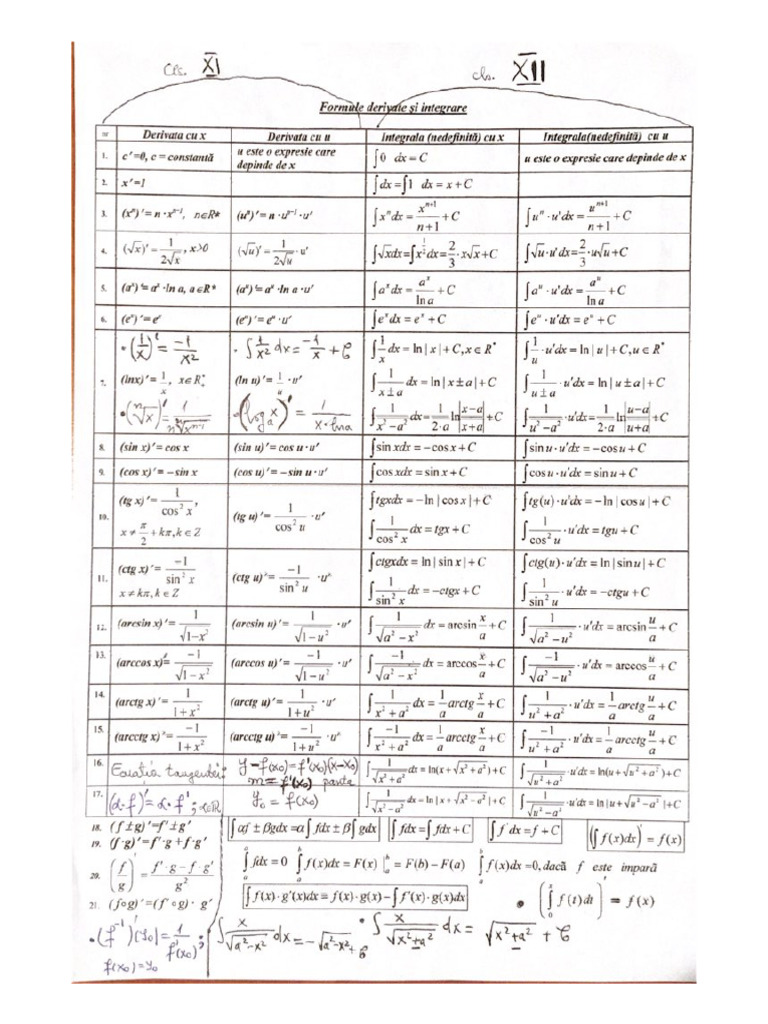 Cls. XI cls. XII
Formule derivate și integrare
nr Derivata cu x Derivata cu u Integrala (nedefinită) cu x Integrala(nedefinită) cu u
1. c'=0, c = constantă u este o expresie care depinde de x ∫0 dx = C u este o expresie care depinde de x
2. x'=1 ∫dx = ∫1 dx = x + C
3. (xⁿ)'= n·xⁿ⁻¹, n∈R* (uⁿ)'= n·uⁿ⁻¹·u' ∫xⁿdx = xⁿ⁺¹/(n+1) + C ∫uⁿ·u'dx = uⁿ⁺¹/(n+1) + C
4. (√x)' = 1/(2√x), x>0 (√u)' = 1/(2√u)·u' ∫√xdx = ∫x^(1/2)dx = 2/3·x√x + C ∫√u·u'dx = 2/3·u√u + C
5. (aˣ)'= aˣ·ln a, a∈R* (aᵘ)'= aᵘ·ln a·u' ∫aˣdx = aˣ/ln a + C ∫aᵘ·u'dx = aᵘ/ln a + C
6. (eˣ)'= eˣ (eᵘ)'= eᵘ·u' ∫eˣdx = eˣ + C ∫eᵘ·u'dx = eᵘ + C
• (1/x)' = -1/x² • ∫1/x² dx = -1/x + C ∫1/x dx = ln|x| + C, x∈R* ∫1/u·u'dx = ln|u| + C, u∈R*
7. (lnx)'= 1/x, x∈R*₊ (ln u)'= 1/u·u' ∫1/(x±a) dx = ln|x±a| + C ∫1/(u±a)·u'dx = ln|u±a| + C
• (ⁿ√x)' = 1/(n ⁿ√xⁿ⁻¹) • (logₐx)' = 1/(x·lna) ∫1/(x²-a²) dx = 1/(2·a) ln|(x-a)/(x+a)| + C ∫1/(u²-a²)·u'dx = 1/(2·a) ln|(u-a)/(u+a)| + C
8. (sin x)'= cos x (sin u)'= cos u·u' ∫sin xdx = -cos x + C ∫sin u·u'dx = -cos u + C
9. (cos x)'= -sin x (cos u)'= -sin u·u' ∫cos xdx = sin x + C ∫cos u·u'dx = sin u + C
10. (tg x)'= 1/cos²x, (tg u)'= 1/cos²u·u' ∫tgxdx = -ln|cos x| + C ∫tg(u)·u'dx = -ln|cos u| + C
x ≠ π/2 + kπ, k∈Z ∫1/cos²x dx = tgx + C ∫1/cos²u·u'dx = tgu + C
11. (ctg x)'= -1/sin²x (ctg u)'= -1/sin²u·u' ∫ctgxdx = ln|sin x| + C ∫ctg(u)·u'dx = ln|sin u| + C
x ≠ kπ, k∈Z ∫1/sin²x dx = -ctgx + C ∫1/sin²u·u'dx = -ctgu + C
12. (arcsin x)'= 1/√(1-x²) (arcsin u)'= 1/√(1-u²)·u' ∫1/√(a²-x²) dx = arcsin x/a + C ∫1/√(a²-u²)·u'dx = arcsin u/a + C
13. (arccos x)'= -1/√(1-x²) (arccos u)'= -1/√(1-u²)·u' ∫-1/√(a²-x²) dx = arccos x/a + C ∫-1/√(a²-u²)·u'dx = arccos u/a + C
14. (arctg x)'= 1/(1+x²) (arctg u)'= 1/(1+u²)·u' ∫1/(x²+a²) dx = 1/a arctg x/a + C ∫1/(u²+a²)·u'dx = 1/a arctg u/a + C
15. (arcctg x)'= -1/(1+x²) (arcctg u)'= -1/(1+u²)·u' ∫-1/(x²+a²) dx = 1/a arcctg x/a + C ∫-1/(u²+a²)·u'dx = 1/a arcctg u/a + C
16. Ecuația tangentei: y-f(x₀)=f'(x₀)(x-x₀) ∫1/√(x²+a²) dx = ln(x+√(x²+a²)) + C ∫1/√(u²+a²)·u'dx = ln(u+√(u²+a²)) + C
m = f'(x₀) panta
17. (α·f)' = α·f'; α∈R y₀ = f(x₀) ∫1/√(x²-a²) dx = ln|x+√(x²-a²)| + C ∫1/√(u²-a²)·u'dx = ln|u+√(u²-a²)| + C
18. (f±g)'=f'±g' ∫αf ± βgdx = α∫fdx ± β∫gdx ∫fdx = ∫fdx + C ∫f'dx = f + C (∫f(x)dx)' = f(x)
19. (f·g)'=f'·g+f·g'
20. (f/g)' = (f'·g-f·g')/g² ∫ₐᵃfdx = 0 ∫ₐᵇf(x)dx = F(x)|ₐᵇ = F(b)-F(a) ∫f(x)dx = 0, dacă f este impară
21. (f∘g)'=(f'∘g)·g' ∫f(x)·g'(x)dx = f(x)·g(x) - ∫f'(x)·g(x)dx • (∫₀ˣf(t)dt)' = f(x)
• (f⁻¹)'(y₀) = 1/f'(x₀); ∫x/√(a²-x²) dx = -√(a²-x²) + C • ∫x/√(x²±a²) dx = √(x²±a²) + C
f(x₀)=y₀